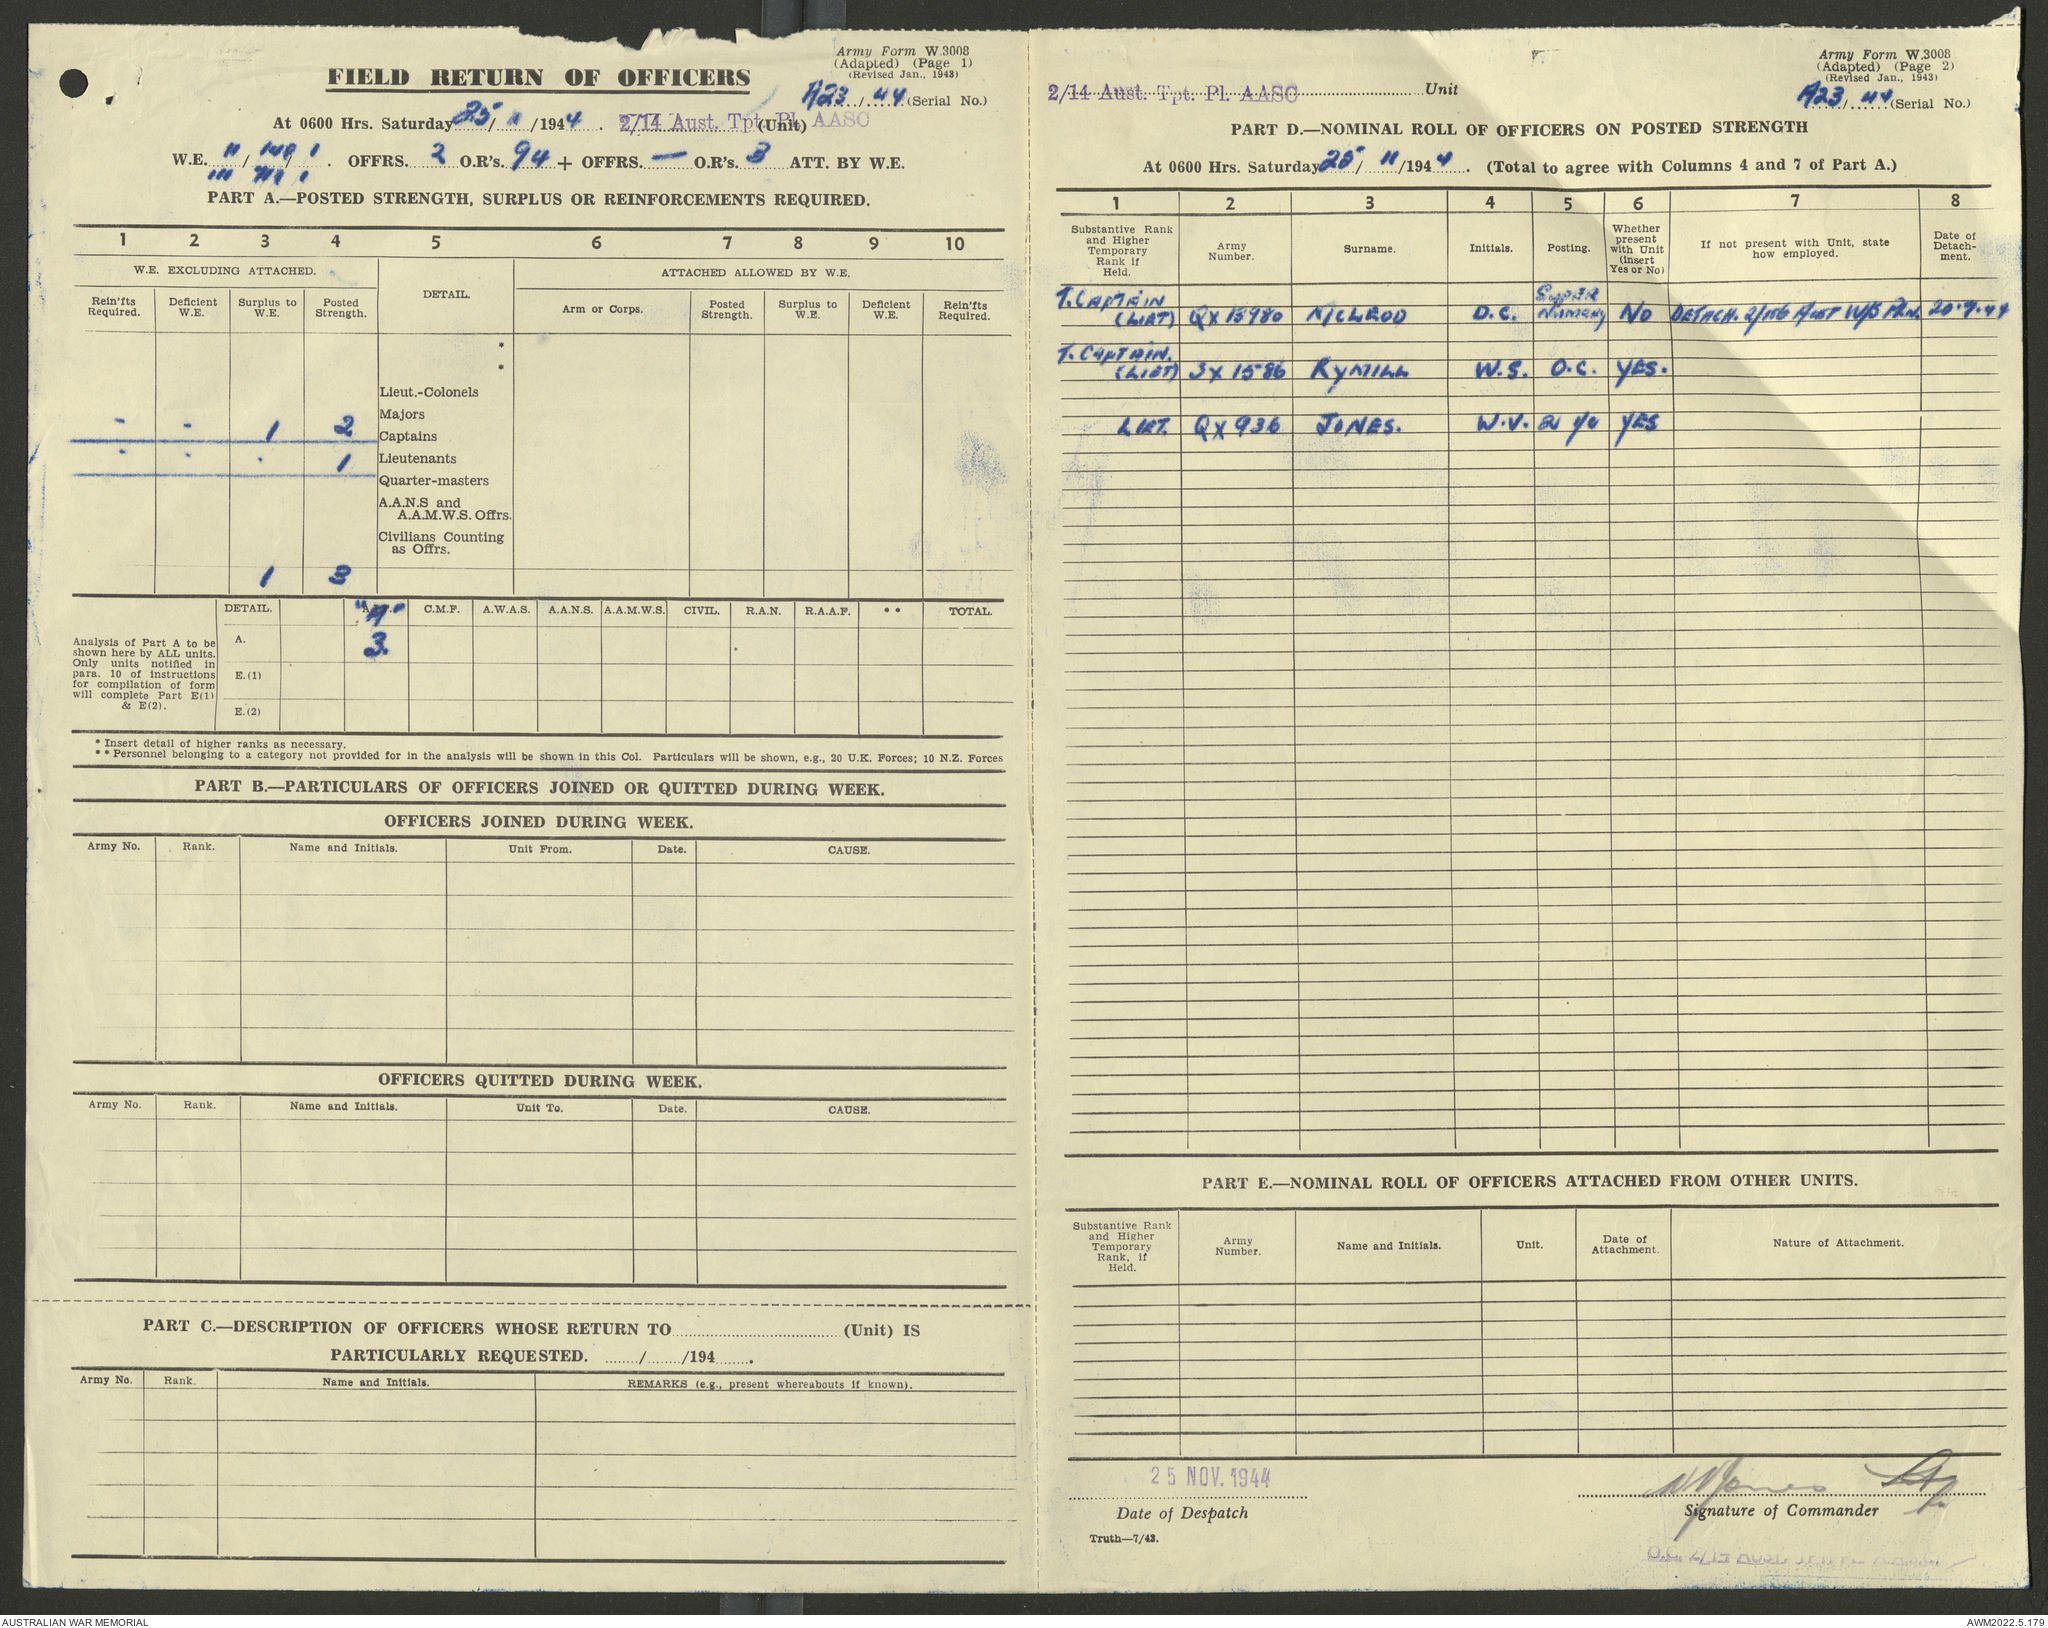 Army Form W.3008
(Adapted) (Page 1)
(Revised Jan., 1943)
FIELD RETURN OF OFFICERS
A23/44 (Serial No.)
At 0600 Hrs. Saturday 25/11/1944. 2/14 Aust. Tpt. Pl. AASC (Unit)
W.E. OFFRS. 2 O.R's. 94 + OFFRS. — O.R's. 3 ATT. BY W.E.
PART A.—POSTED STRENGTH, SURPLUS OR REINFORCEMENTS REQUIRED.
1 2 3 4 5 6 7 8 9 10
W.E. EXCLUDING ATTACHED. DETAIL. ATTACHED ALLOWED BY W.E.
Rein'fts Required. Deficient W.E. Surplus to W.E. Posted Strength. Arm or Corps. Posted Strength. Surplus to W.E. Deficient W.E. Rein'fts Required.
*
*
Lieut.-Colonels
Majors
- - 1 2 Captains
- - . 1 Lieutenants
Quarter-masters
A.A.N.S and
A.A.M.W.S. Offrs.
Civilians Counting
as Offrs.
1 3
DETAIL. "A" C.M.F. A.W.A.S. A.A.N.S. A.A.M.W.S. CIVIL. R.A.N. R.A.A.F. ** TOTAL.
Analysis of Part A to be
shown here by ALL units.
Only units notified in
para. 10 of instructions
for compilation of form
will complete Part E(1)
& E(2).
A. 3.
E.(1)
E.(2)
* Insert detail of higher ranks as necessary.
** Personnel belonging to a category not provided for in the analysis will be shown in this Col. Particulars will be shown, e.g., 20 U.K. Forces; 10 N.Z. Forces
PART B.—PARTICULARS OF OFFICERS JOINED OR QUITTED DURING WEEK.
OFFICERS JOINED DURING WEEK.
Army No. Rank. Name and Initials. Unit From. Date. CAUSE.
OFFICERS QUITTED DURING WEEK.
Army No. Rank. Name and Initials. Unit To. Date. CAUSE.
PART C.—DESCRIPTION OF OFFICERS WHOSE RETURN TO (Unit) IS
PARTICULARLY REQUESTED. / /194 .
Army No. Rank. Name and Initials. REMARKS (e.g., present whereabouts if known).
Army Form W.3008
(Adapted) (Page 2)
(Revised Jan., 1943)
A23/44 (Serial No.)
2/14 Aust. Tpt. Pl. AASC Unit
PART D.—NOMINAL ROLL OF OFFICERS ON POSTED STRENGTH
At 0600 Hrs. Saturday 25/11/1944. (Total to agree with Columns 4 and 7 of Part A.)
1 2 3 4 5 6 7 8
Substantive Rank and Higher Temporary Rank if Held. Army Number. Surname. Initials. Posting. Whether present with Unit (insert Yes or No) If not present with Unit, state how employed. Date of Detach-ment.
T. CAPTAIN SUPER
(LIET) QX 15980 McLEOD D.C. NUMERY NO DETACH. 2/156 AUST W/S PLN. 20.9.44
T. CAPTAIN.
(LIET) SX 1586 RYMILL W.S. O.C. YES.
LIET. QX 936 JONES. W.V. 2 I/C YES
PART E.—NOMINAL ROLL OF OFFICERS ATTACHED FROM OTHER UNITS.
Substantive Rank and Higher Temporary Rank, if Held. Army Number. Name and Initials. Unit. Date of Attachment. Nature of Attachment.
25 NOV. 1944
Date of Despatch
WVJones Lt
Signature of Commander
Truth—7/43.
AUSTRALIAN WAR MEMORIAL
AWM2022.5.179